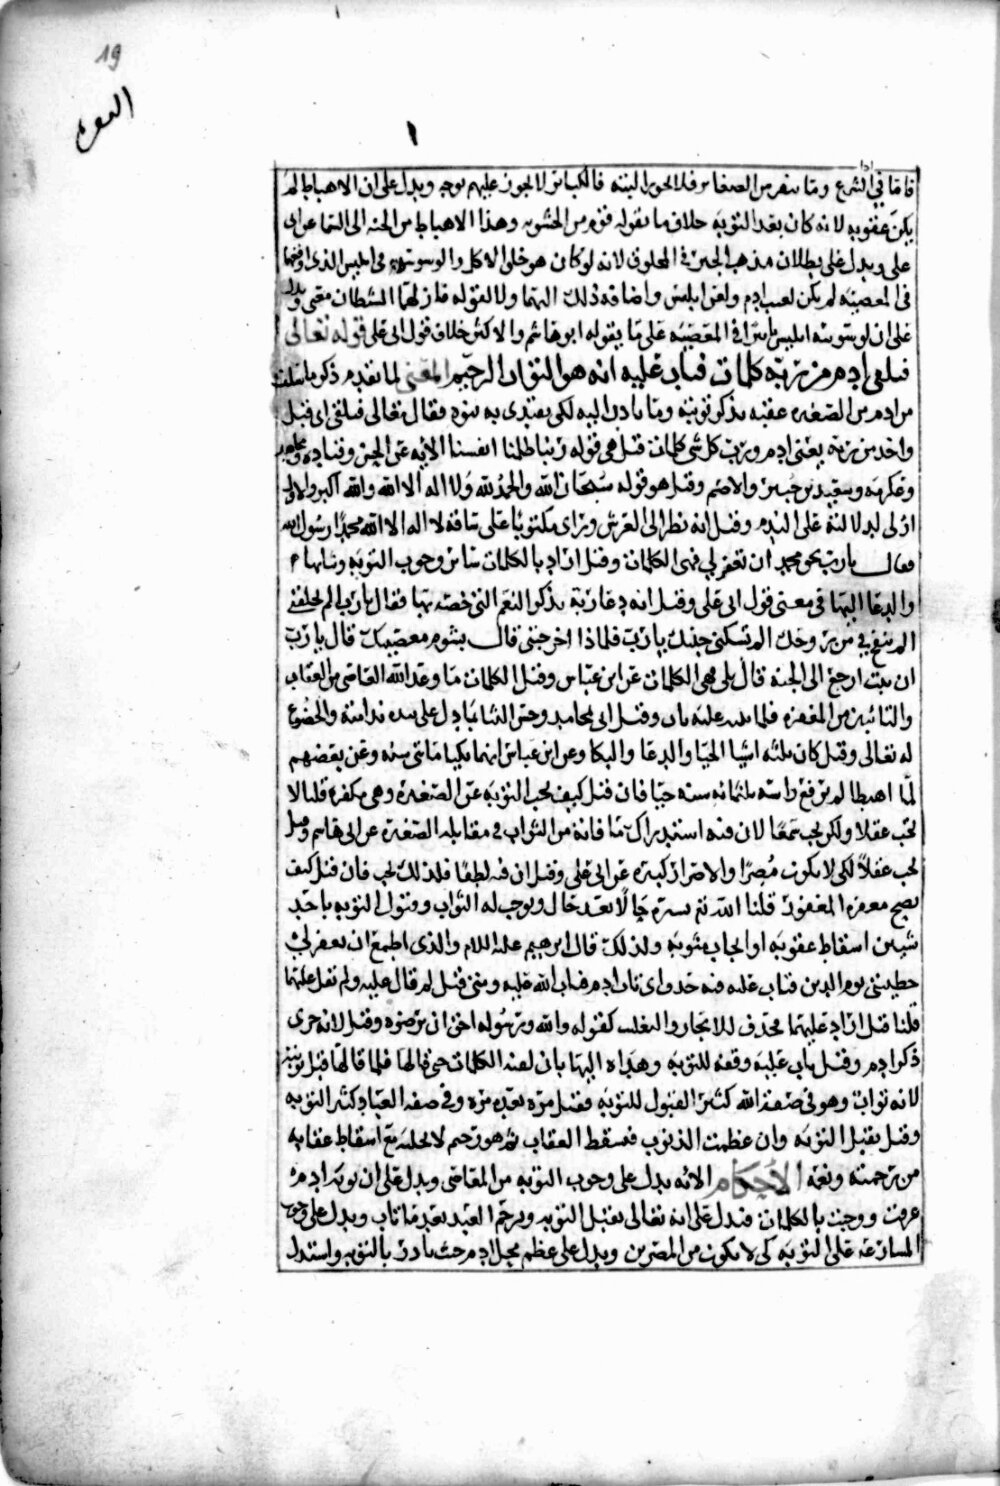 19
التوبة
١
فاما في الشرع وما ينفر من الصغائر فلا يجوز البتة فالكبائر لا يجوز عليهم بوجه ويدل على ان الاهباط لم
يكن عقوبه لانه كان بعد التوبه خلاف ما يقوله قوم من الحشويه وهذا الاهباط من الجنه الى السما عن ابي
علي ويدل على بطلان مذهب الجبريه في المخلوق لانه لو كان هو خلق الاكل والوسوسه في ابليس الذي اوقعهما
في المعصيه لم يكن لعيب ادم ولعن ابليس واضافه ذلك اليهما ولا لقوله فازلهما الشيطان معنى ويدل
على ان لوسوسه ابليس تأثيرا في المعصيه على ما يقوله ابو هاشم والاكثر خلاف قول ابي علي قوله تعالى
فتلقى ادم من ربه كلمات فتاب عليه انه هو التواب الرحيم المعنى لما تقدم ذكر ما سلف
من ادم من الصغيره عقبه بذكر توبته وما بادر اليه لكي يقتدى به غيره فقال تعالى فتلقى اي قبل
واخذ من ربه يعني ادم ورب كل شي كلمات قيل هي قوله ربنا ظلمنا انفسنا الايه عن الحسن وقتاده ومجاهد
وعكرمه وسعيد بن جبير والاصم وقيل هو قوله سبحان الله والحمد لله ولا اله الا الله والله اكبر والاول
اولى لدلالته على الندم وقيل انه نظر الى العرش وراى مكتوبا على ساقه لا اله الا الله محمد رسول الله
فقال يا رب بحق محمد ان تغفر لي فهي الكلمات وقيل اراد بالكلمات سائر وجوب التوبه وشانها
والدعا اليها في معنى قول ابي علي وقيل انه دعا ربه بذكر النعم التي خصه بها فقال يا رب الم تخلقني
الم تنفخ في من روحك الم تسكني جنتك يا رب فلماذا اخرجتني قال بشوم معصيتك قال يا رب
ان تبت ارجع الى الجنة قال بلى فهي الكلمات عن ابن عباس وقيل الكلمات ما وعد الله العاصي من العقاب
والتائبين من المغفره فلما تدبر عليه تاب وقيل اتى بمحامد وحسن الثنا بما دل على شده ندامته والخضوع
له تعالى وقيل كان ثلثه اشيا الحيا والدعا والبكا وعن ابن عباس انهما بكيا مائتي سنه وعن بعضهم
لما اهبطا لم يرفع راسه ثلثمائه سنه حيا فان قيل كيف تجب التوبه عن الصغيره وهي مكفره قلنا لا
تجب عقلا ولكن تجب سمعا لان فيه استدراك ما فاته من الثواب في مقابله الصغيره عن ابي هاشم وقيل
تجب عقلا لكي لا يكون مصرا والاصرار كبيره عن ابي علي وقيل ان فيه لطفا فلذلك تجب فان قيل كيف
تصح مغفره المغفور قلنا الله
شيئين اسقاط عقوبه او ايجاب مثوبه ولذلك قال ابرهيم عليه السلام والذي اطمع ان يغفر لي
خطيئتي يوم الدين فتاب عليه فيه حذف اي تاب ادم فتاب الله عليه ومتى قيل لم قال عليه ولم يقل عليهما
قلنا قيل اراد عليهما فحذف للايجاز والتغليب كقوله والله ورسوله احق ان يرضوه وقيل لانه جرى
ذكر ادم وقيل تاب عليه وفقه للتوبه وهداه اليها بان لقنه الكلمات حتى قالها فلما قالها قبل توبته
لانه تواب وهو في صفه الله كثير القبول للتوبه فيقبل مره بعد مره وفي صفه العباد كثير التوبه
وقيل يقبل التوبه وان عظمت الذنوب فيسقط العقاب ثم هو رحيم لا يخليه مع اسقاط عقابه
من رحمته ونعمه الاحكام الايه يدل على وجوب التوبه من المعاصي ويدل على ان توبه ادم
عرفت ووجبت بالكلمات فتدل على انه تعالى يقبل التوبه ويرحم العبد بعد ما تاب ويدل على وجوب
المسارعه على التوبه كي لا يكون من المصرين ويدل على عظم محل ادم حيث بادر بالتوبه واستدل